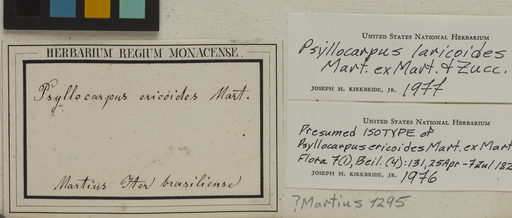 HERBARIUM REGIUM MONACENSE.
Psyllocarpus ericoides Mart.
Martius Iter brasiliense
UNITED STATES NATIONAL HERBARIUM
Psyllocarpus laricoides
Mart. ex Mart. & Zucc.
JOSEPH H. KIRKBRIDE, JR. 1977
UNITED STATES NATIONAL HERBARIUM
Presumed ISOTYPE of
Psyllocarpus ericoides Mart. ex Mart
Flora 7(1), Beil. (4):131, 25Apr-7Jul 182
JOSEPH H. KIRKBRIDE, JR. 1976
?Martius 1295